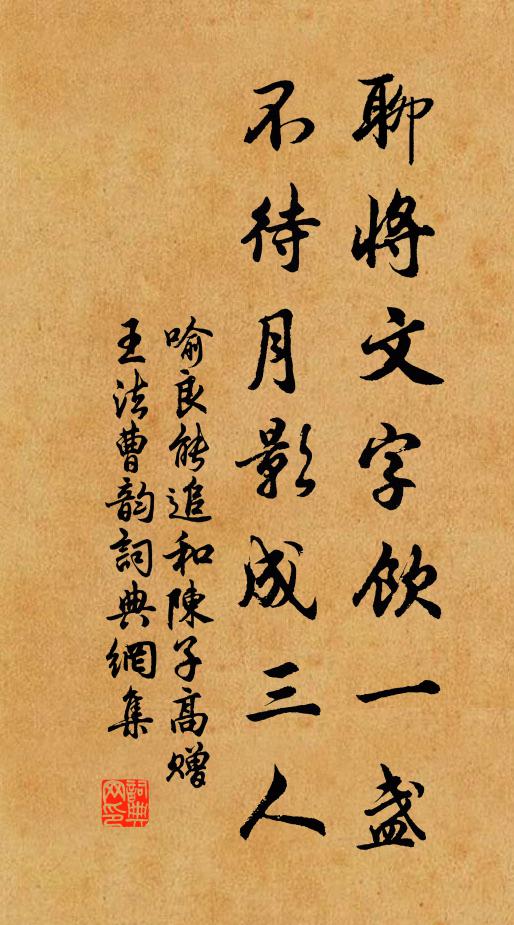 聊將文字飲一盞
不待月影成三人
喻良能追和陳子高贈
王法曹韵詞典網集
詞典网印